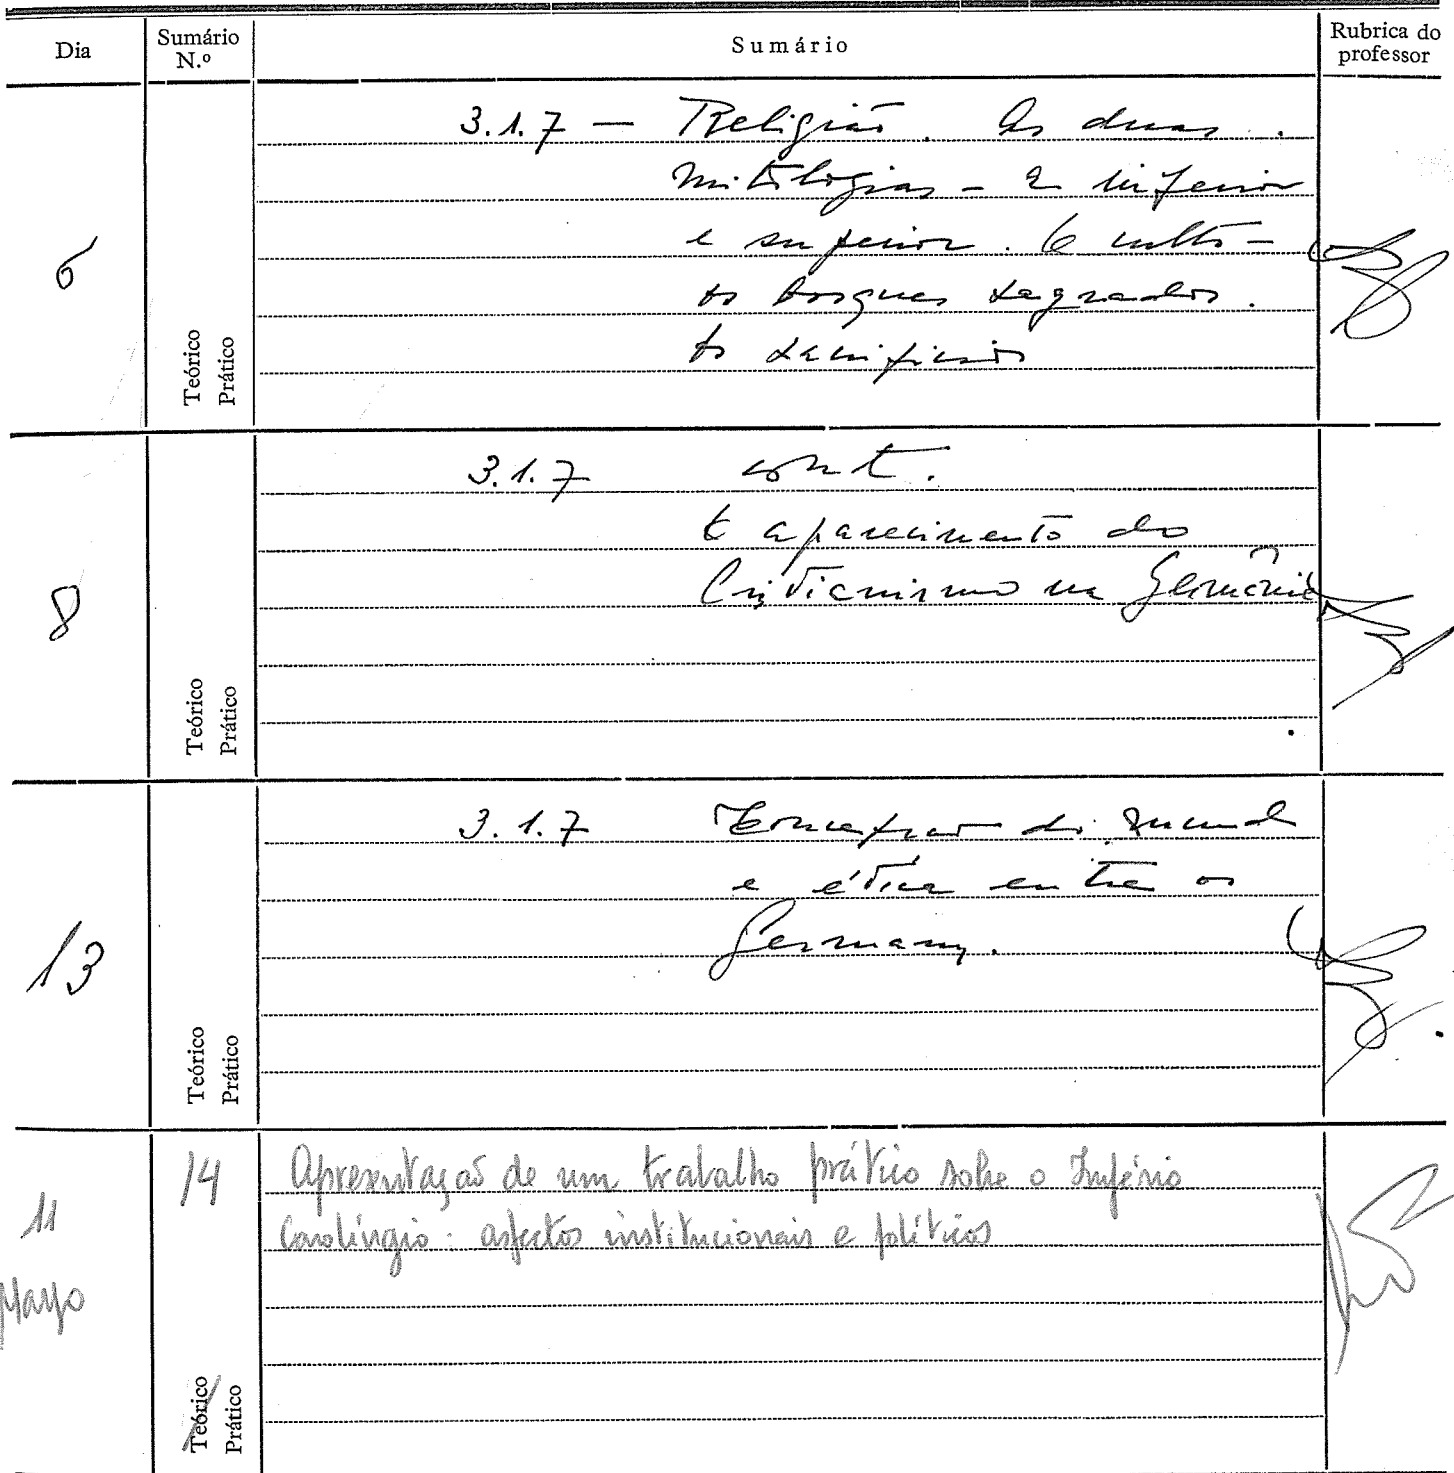 Dia
Sumário N.º
Sumário
Rubrica do professor
6
Teórico
Prático
3.1.7 — Religião. As duas
mitologias – a inferior
e superior. O culto –
os bosques sagrados.
Os sacrifícios
8
Teórico
Prático
3.1.7 cont.
O aparecimento do
Cristianismo na Germânia
13
Teórico
Prático
3.1.7 Concepção do mundo
e ética entre os
Germanos.
11 Mayo
14
Teórico
Prático
Apresentação de um trabalho prático sobre o Império
Carolíngio: aspectos institucionais e políticos